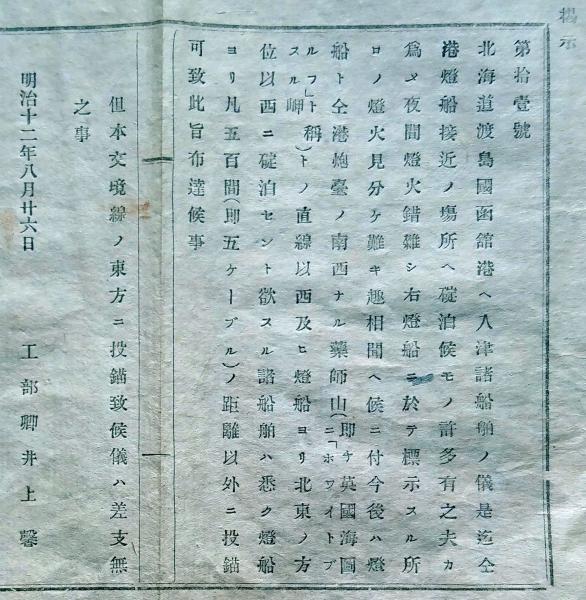 掲示
第拾壹號
北海道渡島國函舘港ヘ入津諸船舶ノ儀是迄仝
港燈船接近ノ塲所ヘ碇泊候モノ許多有之夫カ
爲メ夜間燈火錯雜シ右燈船ニ於テ標示スル所
ロノ燈火見分ケ難キ趣相聞ヘ候ニ付今後ハ燈
船ト仝港炮臺ノ南西ナル藥師山(即チ英國海圖ニ「ホワイトブ
ルフ」ト稱スル岬)トノ直線以西及ヒ燈船ヨリ北東ノ方
位以西ニ碇泊セント欲スル諸船舶ハ悉ク燈船
ヨリ凡五百間(即五ケーブル)ノ距離以外ニ投錨
可致此旨布達候事
但本文境線ノ東方ニ投錨致候儀ハ差支無
之事
明治十二年八月廿六日 工部卿井上馨